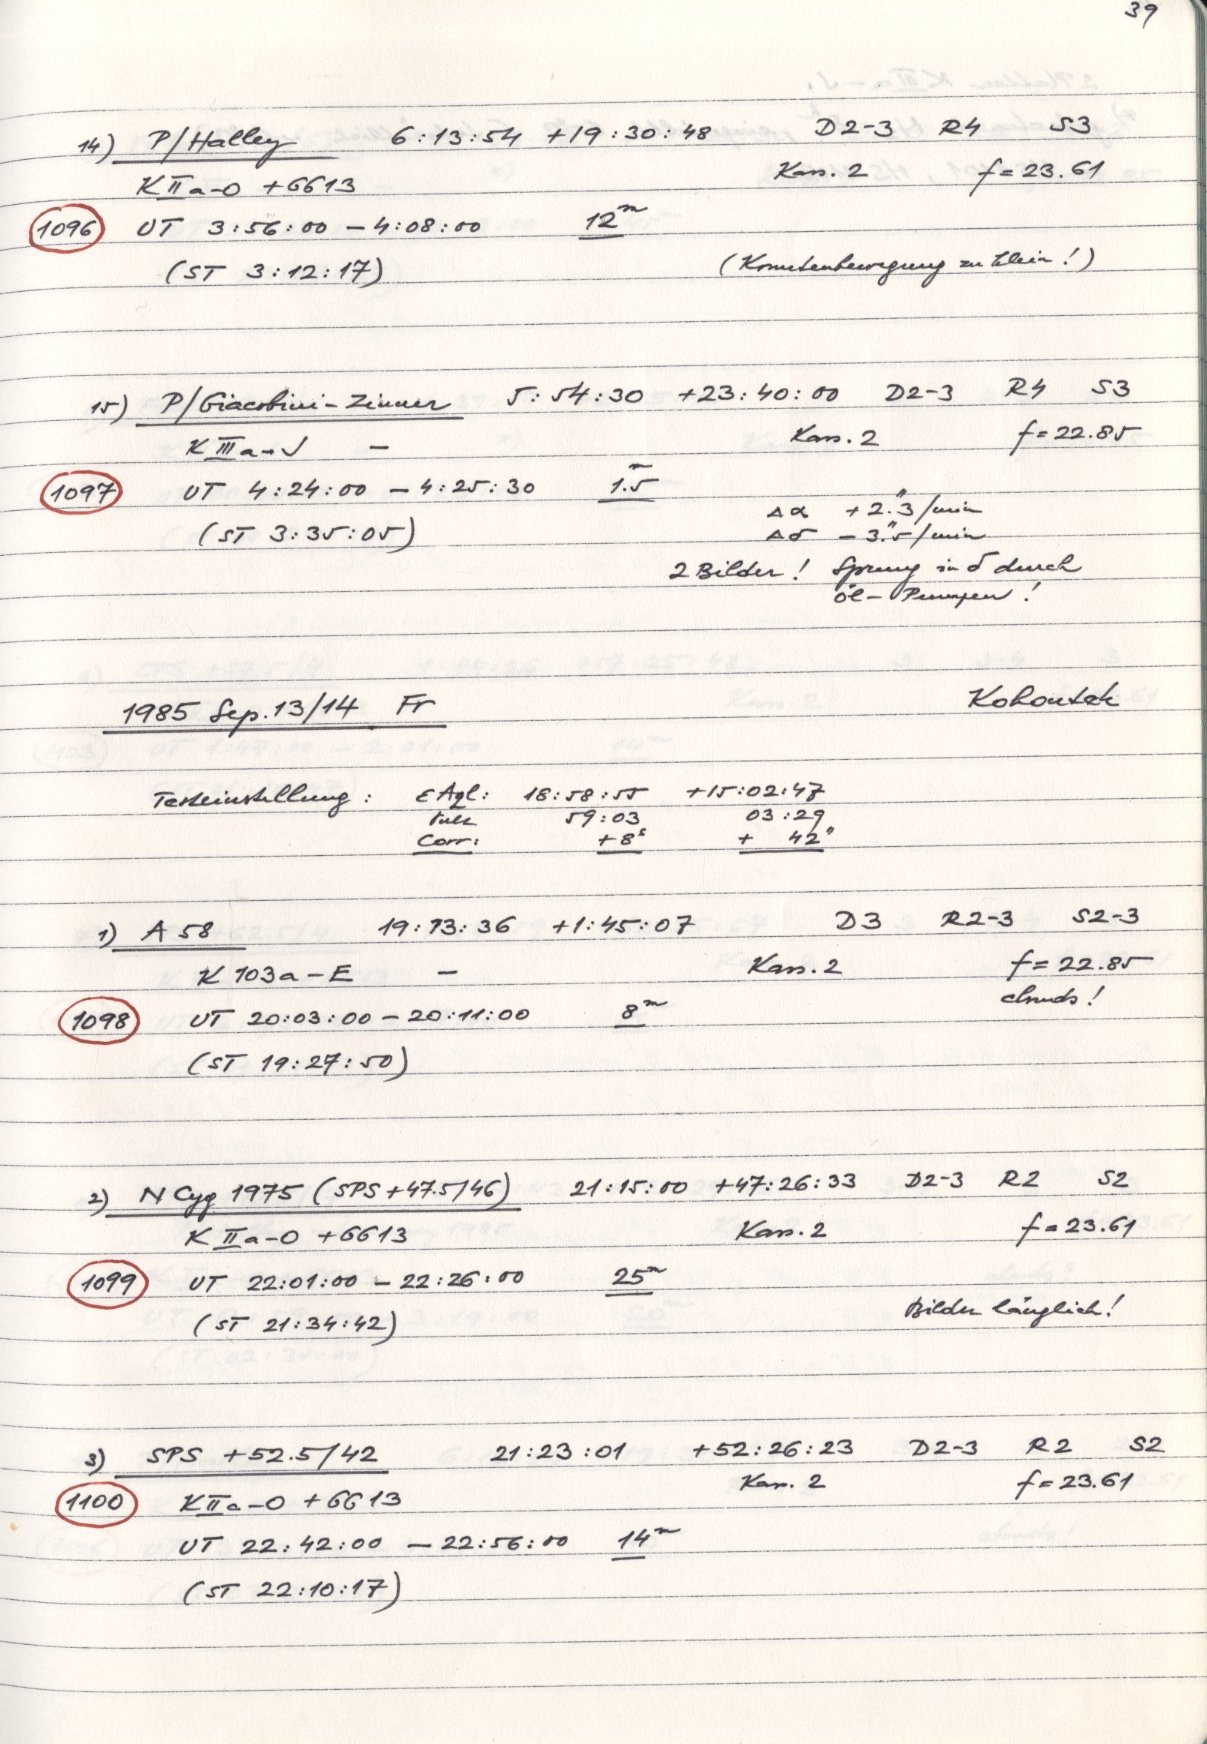 39
14) P/Halley 6:13:54 +19:30:48 D2-3 R4 S3
K IIa-O +GG13 Kass. 2 f=23.61
1096 UT 3:56:00 - 4:08:00 12m
(ST 3:12:17) (Kometenbewegung zu klein!)
15) P/Giacobini-Zinner 5:54:30 +23:40:00 D2-3 R4 S3
K IIIa-J - Kass. 2 f=22.85
1097 UT 4:24:00 - 4:25:30 1.5m
Δα +2."3/min
(ST 3:35:05) Δδ -3."5/min
2 Bilder! Sprung in δ durch
Öl-Pumpen!
1985 Sep. 13/14 Fr Kohoutek
Testeinstellung: ε Aql: 18:58:55 +15:02:47
Pult 59:03 03:29
Corr: +8s + 42"
1) A 58 19:13:36 +1:45:07 D3 R2-3 S2-3
K 103a-E - Kass. 2 f=22.85
clouds!
1098 UT 20:03:00 - 20:11:00 8m
(ST 19:27:50)
2) N Cyg 1975 (SPS +47.5/46) 21:15:00 +47:26:33 D2-3 R2 S2
K IIa-O +GG13 Kass. 2 f=23.61
1099 UT 22:01:00 - 22:26:00 25m
(ST 21:34:42) Bilder länglich!
3) SPS +52.5/42 21:23:01 +52:26:23 D2-3 R2 S2
Kass. 2 f=23.61
1100 K IIa-O +GG13
UT 22:42:00 - 22:56:00 14m
(ST 22:10:17)